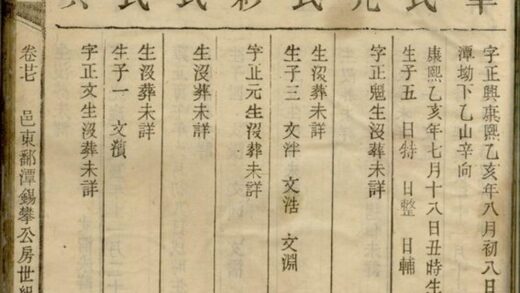 氏
氏
氏
氏
字正興康熙乙亥年八月初八日
潭坳下乙山辛向
康熙乙亥年七月十八日丑時生
生子五 日特 日整 日輔
字正魁生沒葬未詳
生沒葬未詳
生子三 文泮 文浩 文淵
字正元生沒葬未詳
生沒葬未詳
生沒葬未詳
生子一 文
字正文生沒葬未詳
卷廿 邑東鄱潭錫攀公房世